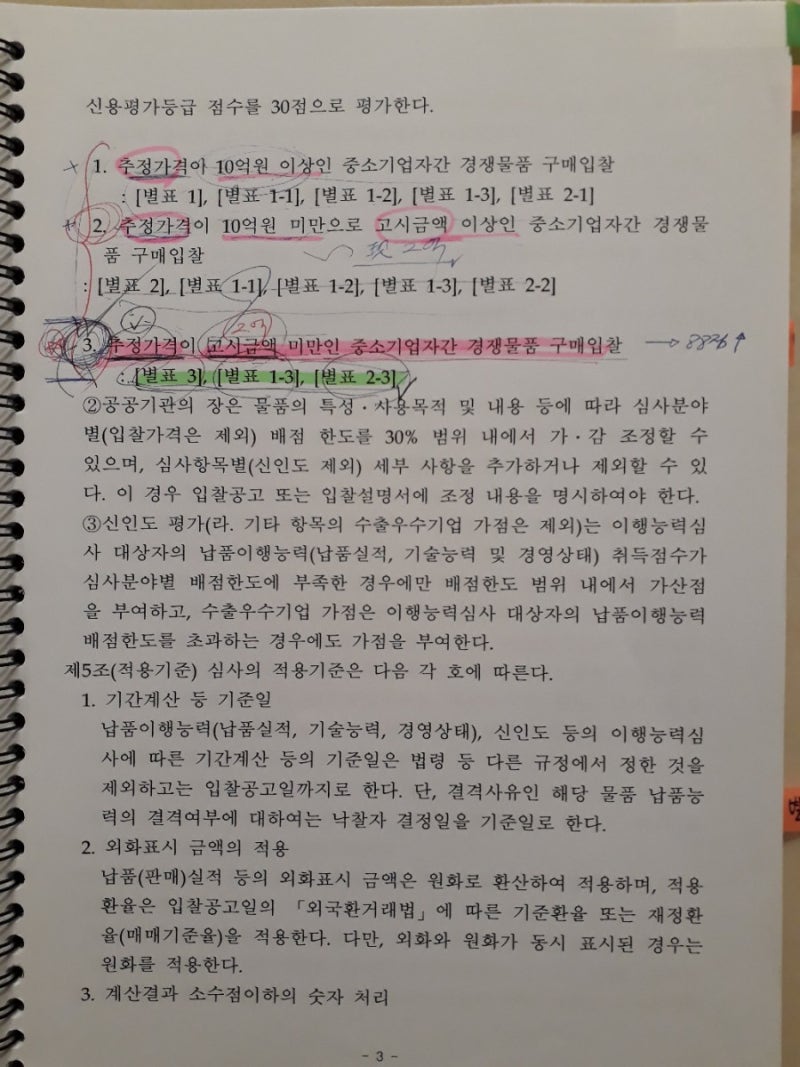 신용평가등급 점수를 30점으로 평가한다.
1. 추정가격아 10억원 이상인 중소기업자간 경쟁물품 구매입찰
: [별표 1], [별표 1-1], [별표 1-2], [별표 1-3], [별표 2-1]
2. 추정가격이 10억원 미만으로 고시금액 이상인 중소기업자간 경쟁물
품 구매입찰
現 2억
: [별표 2], [별표 1-1], [별표 1-2], [별표 1-3], [별표 2-2]
2억
3. 추정가격이 고시금액 미만인 중소기업자간 경쟁물품 구매입찰
: [별표 3], [별표 1-3], [별표 2-3]
②공공기관의 장은 물품의 특성·사용목적 및 내용 등에 따라 심사분야
별(입찰가격은 제외) 배점 한도를 30% 범위 내에서 가·감 조정할 수
있으며, 심사항목별(신인도 제외) 세부 사항을 추가하거나 제외할 수 있
다. 이 경우 입찰공고 또는 입찰설명서에 조정 내용을 명시하여야 한다.
③신인도 평가(라. 기타 항목의 수출우수기업 가점은 제외)는 이행능력심
사 대상자의 납품이행능력(납품실적, 기술능력 및 경영상태) 취득점수가
심사분야별 배점한도에 부족한 경우에만 배점한도 범위 내에서 가산점
을 부여하고, 수출우수기업 가점은 이행능력심사 대상자의 납품이행능력
배점한도를 초과하는 경우에도 가점을 부여한다.
제5조(적용기준) 심사의 적용기준은 다음 각 호에 따른다.
1. 기간계산 등 기준일
납품이행능력(납품실적, 기술능력, 경영상태), 신인도 등의 이행능력심
사에 따른 기간계산 등의 기준일은 법령 등 다른 규정에서 정한 것을
제외하고는 입찰공고일까지로 한다. 단, 결격사유인 해당 물품 납품능
력의 결격여부에 대하여는 낙찰자 결정일을 기준일로 한다.
2. 외화표시 금액의 적용
납품(판매)실적 등의 외화표시 금액은 원화로 환산하여 적용하며, 적용
환율은 입찰공고일의 「외국환거래법」에 따른 기준환율 또는 재정환
율(매매기준율)을 적용한다. 다만, 외화와 원화가 동시 표시된 경우는
원화를 적용한다.
3. 계산결과 소수점이하의 숫자 처리
- 3 -